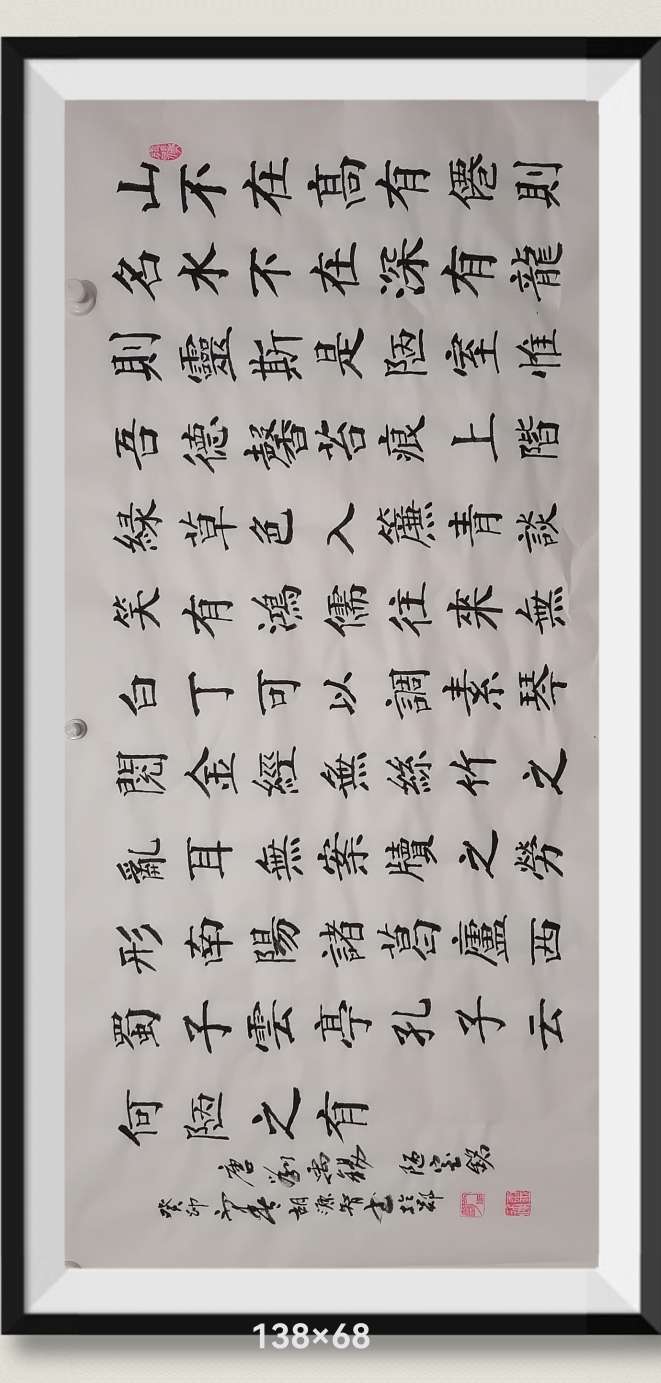 山不在髙有僊則
名水不在深有龍
則靈斯是陋室惟
吾德馨苔痕上階
緑草色入簾青談
笑有鴻儒往來無
白丁可以調素琴
閱金經無絲竹之
亂耳無案牘之勞
形南陽諸葛廬西
蜀子雲亭孔子云
何陋之有
唐劉禹錫 陋室銘
癸卯 胡源智書於
138×68